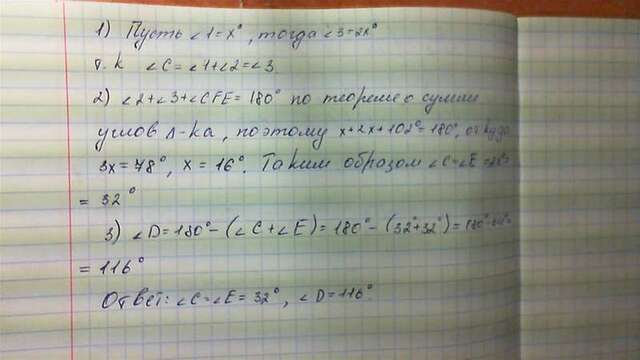 1) Пусть ∠1=x°, тогда ∠3=2x°
т.к ∠C=∠1+∠2=∠3
2) ∠2+∠3+∠CFE=180° по теореме о сумме
углов Δ-ка, поэтому x+2x+102°=180°, откуда
3x=78°, x=16°. Таким образом ∠C=∠E=
=32°
3) ∠D=180°-(∠C+∠E)=180°-(32°+32°)=
=116°
Ответ: ∠C=∠E=32°, ∠D=116°.